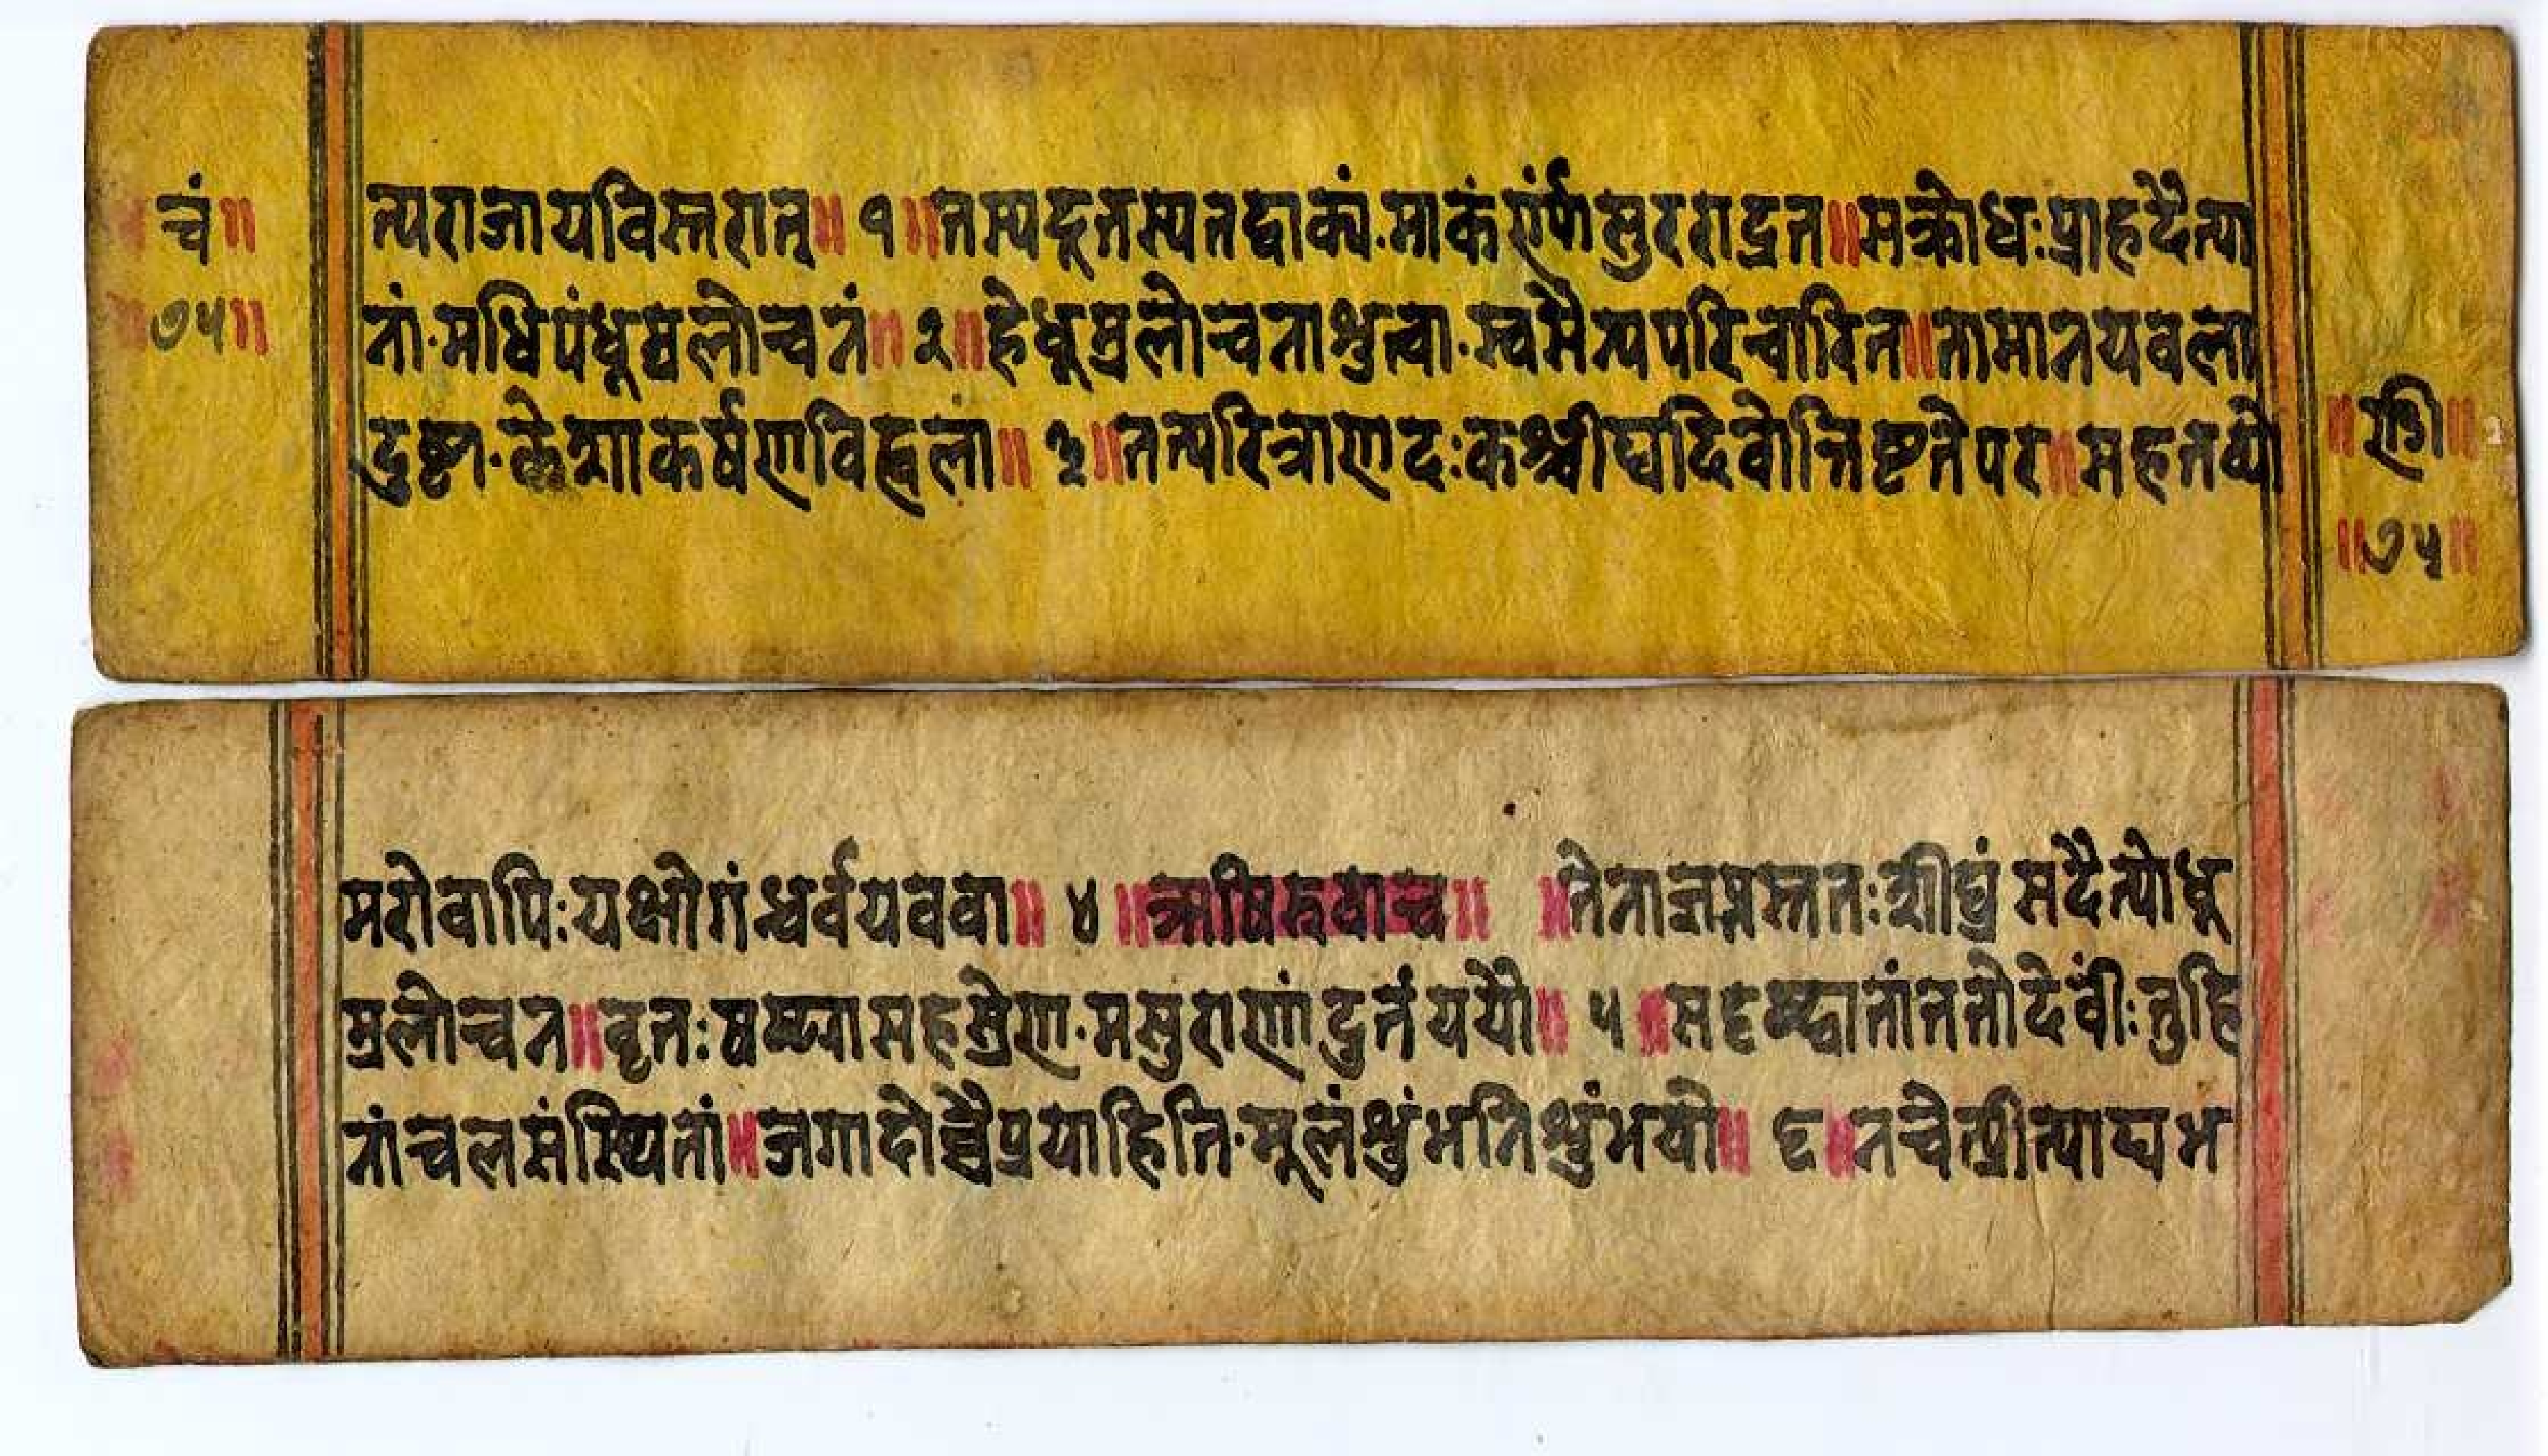 चं॥
७५॥
त्यराजायविस्तरात्॥ १॥तस्यदूतस्यतद्वाक्यं·माकंर्ण्णसुरराट्रत॥सक्रोधःप्राहदैत्या
नां·मधिपंधूम्रलोचनं॥ २॥हेधूम्रलोचनाश्रुत्वा·स्वसैन्यपरिवारित॥तामानयवला
दुष्टा·केशाकर्षणविह्वलां॥ ३॥तत्परित्राणदःकश्चीद्यदिवोत्तिष्टतेपर॥सहतव्यो
॥ण्डी॥
॥७५॥
मरोवापिःयक्षोगंधर्वयववा॥ ४ ॥ऋषिरूवाच॥ ॥तेनाज्ञप्तस्ततःशीघ्रं सदैत्योधू
म्रलोचन॥वृतःषष्ट्यासहस्रेण·मसुराणांद्रुतंययौ॥ ५॥सदृष्ट्वातांततोदेवींःतुहि
नांचलसंस्थितां॥जगादोच्चैप्रयाहिति·मूलंश्रुंभनिश्रुंभयो॥ ६॥नचेत्प्रीत्याद्यभ